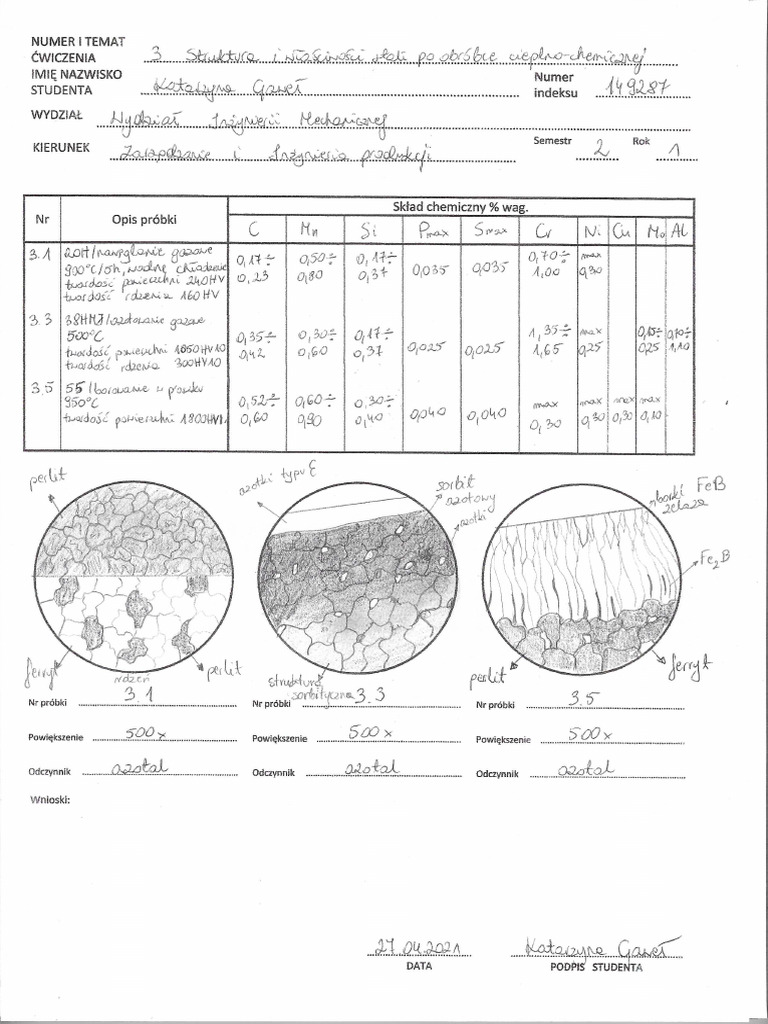 NUMER I TEMAT ĆWICZENIA 3 Struktura i własności stali po obróbce cieplno-chemicznej
IMIĘ NAZWISKO STUDENTA Katarzyna Gaweł Numer indeksu 149287
WYDZIAŁ Wydział Inżynierii Mechanicznej
KIERUNEK Zarządzanie i Inżynieria produkcji Semestr 2 Rok 1
Nr Opis próbki Skład chemiczny % wag.
C Mn Si Pmax Smax Cr Ni Cu Mo Al
3.1 20H/nawęglanie gazowe 0,17÷ 0,50÷ 0,17÷ 0,035 0,035 0,70÷ max
900°C/5h, wolne chłodzenie 0,23 0,80 0,37 1,00 0,30
twardość powierzchni 240HV
twardość rdzenia 160HV
3.3 38HMJ/azotowanie gazowe 0,35÷ 0,30÷ 0,17÷ 0,025 0,025 1,35÷ max 0,15÷ 0,70÷
500°C 0,42 0,60 0,37 1,65 0,25 0,25 1,10
twardość powierzchni 1050HV10
twardość rdzenia 300HV10
3.5 55/borowanie w proszku 0,52÷ 0,60÷ 0,30÷ 0,040 0,040 max max max max
950°C 0,60 0,90 0,40 0,30 0,30 0,30 0,10
twardość powierzchni 1800HV
perlit
azotki typu ε
sorbit azotowy
azotki
borki żelaza FeB
Fe2B
ferryt
rdzeń
perlit
struktura sorbityczna
perlit
ferryt
Nr próbki 3.1 Nr próbki 3.3 Nr próbki 3.5
Powiększenie 500x Powiększenie 500x Powiększenie 500x
Odczynnik azotal Odczynnik azotal Odczynnik azotal
Wnioski:
27.04.2021 Katarzyna Gaweł
DATA PODPIS STUDENTA